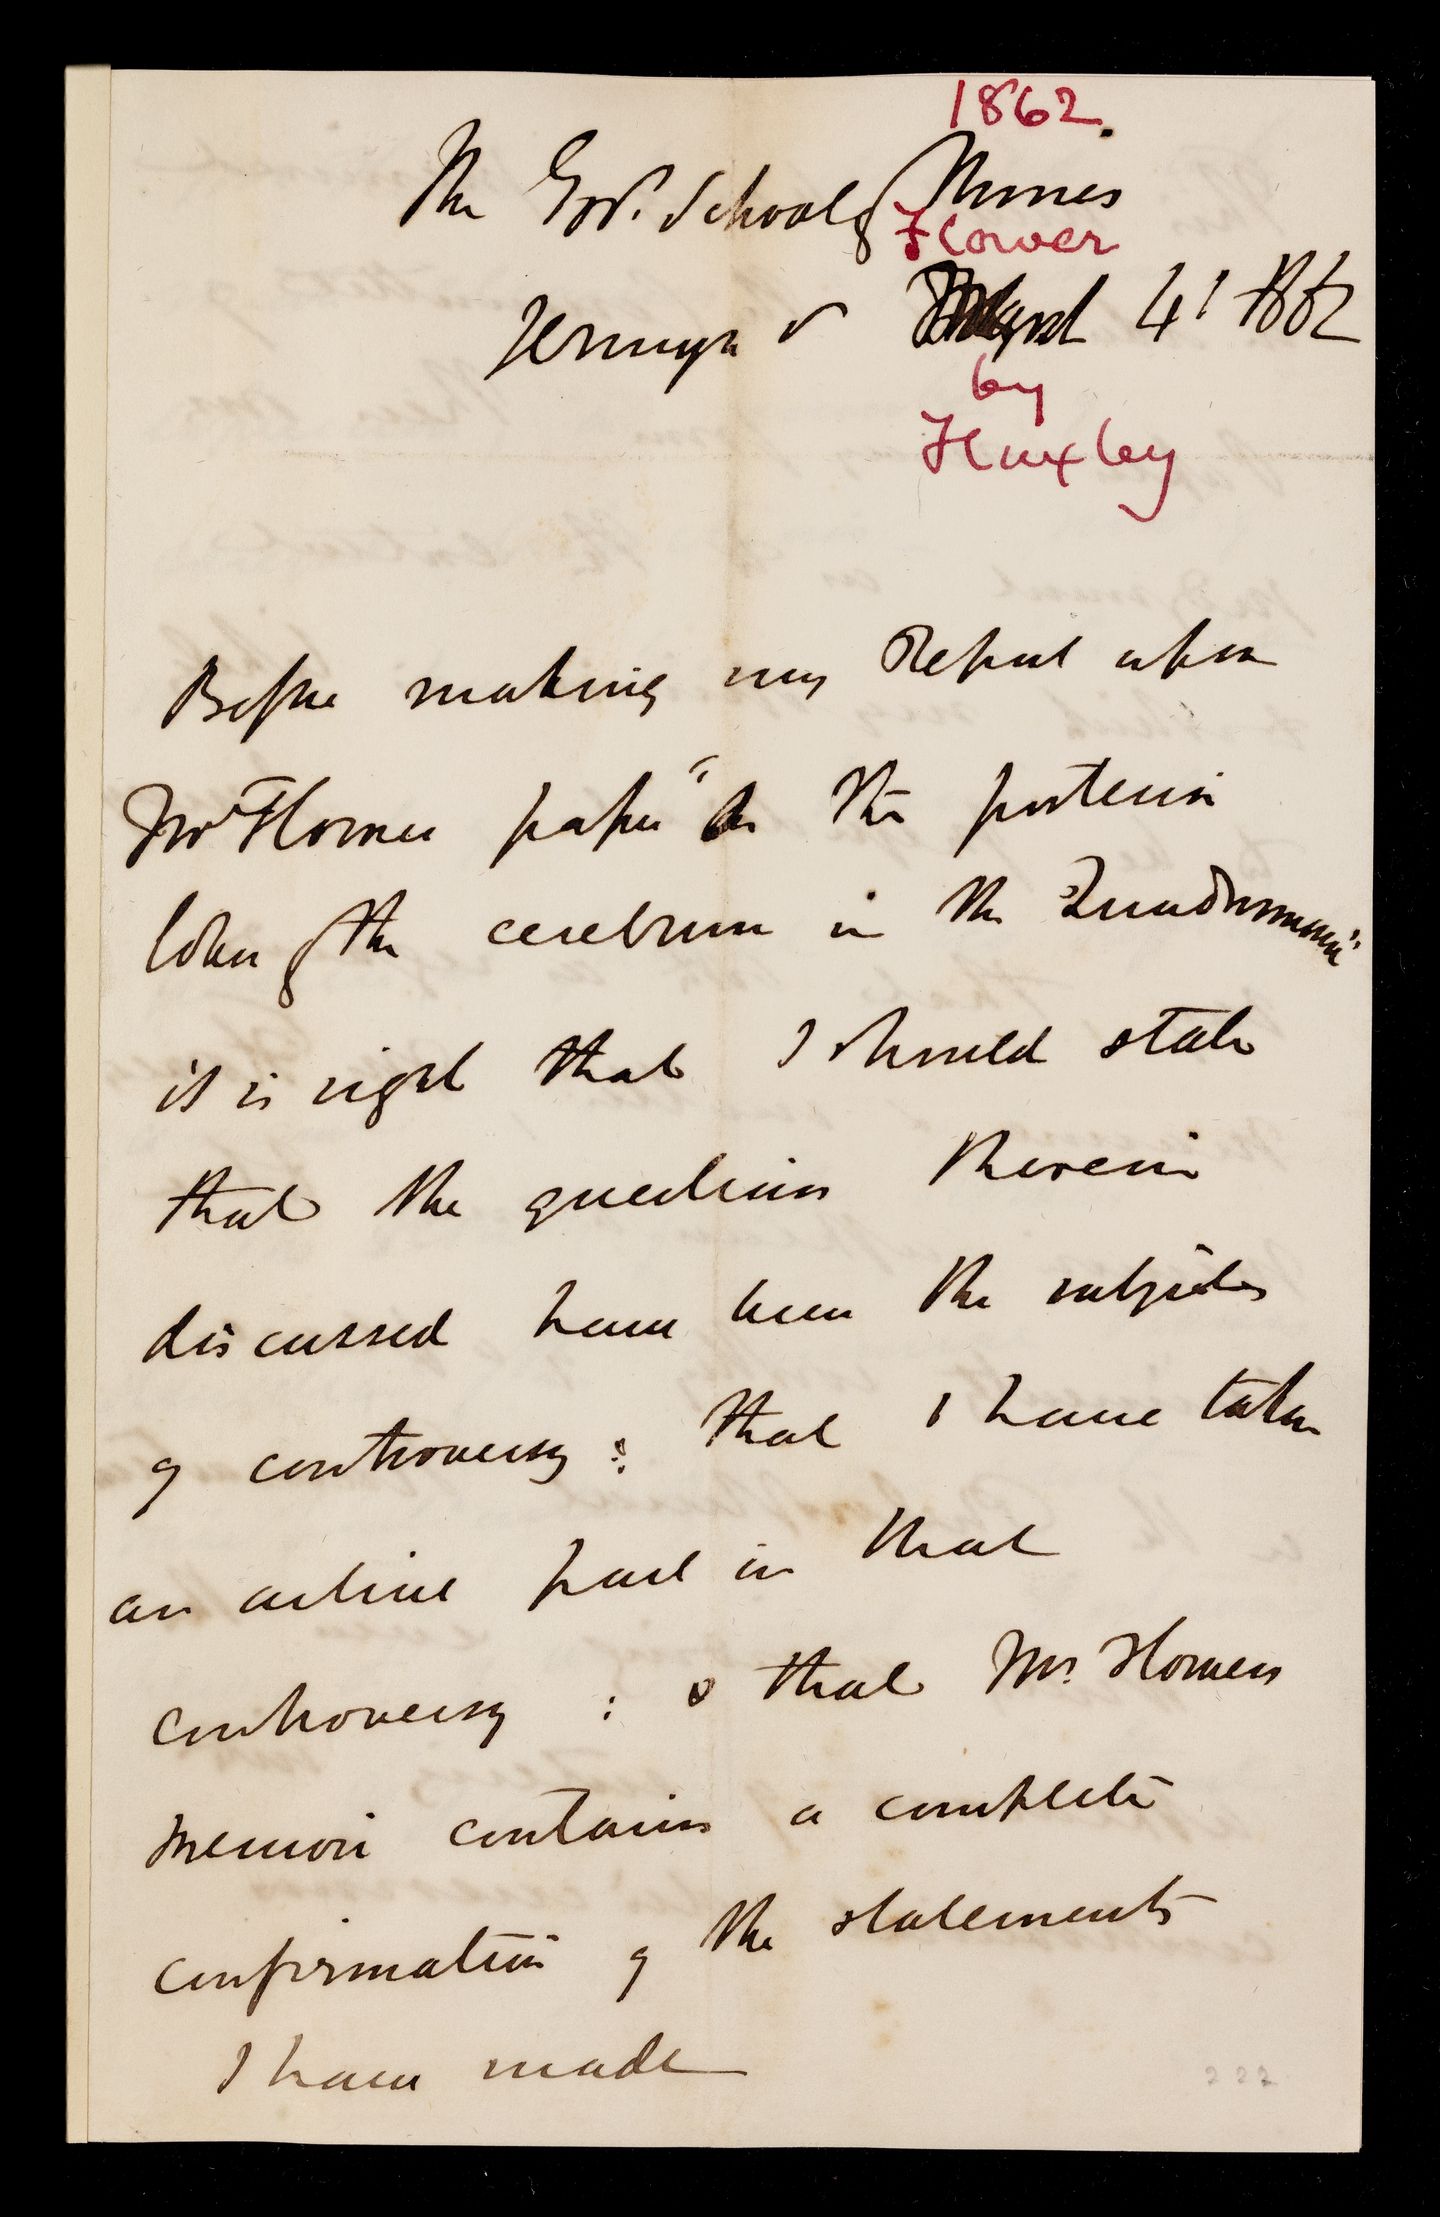 1862.
The Govt. School of Mines
Flower
Jermyn St March 4th 1862
by
Huxley
Before making my Report upon
Mr Flower paper "On the posterior
lobes of the cerebrum in the Quadrumana"
it is right that I should state
that the questions therein
discussed have been the subjects
of controversy: that I have taken
an active part in that
controversy: & that Mr. Flowers
memoir contains a complete
confirmation of the statements
I have made
222